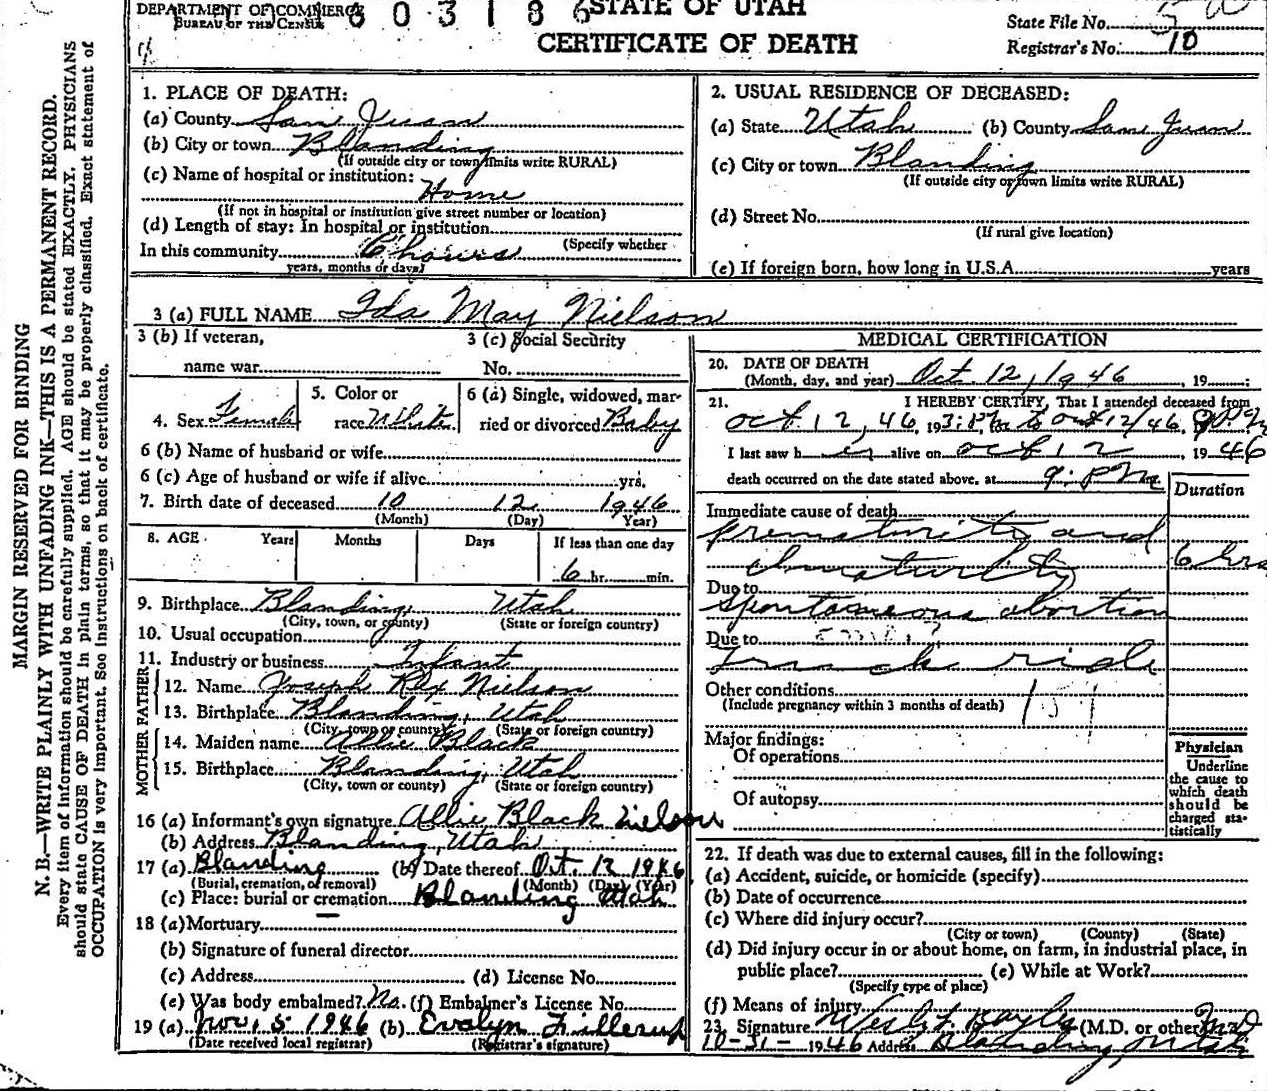 MARGIN RESERVED FOR BINDING
N. B.—WRITE PLAINLY WITH UNFADING INK—THIS IS A PERMANENT RECORD.
Every item of information should be carefully supplied. AGE should be stated EXACTLY. PHYSICIANS
should state CAUSE OF DEATH in plain terms, so that it may be properly classified. Exact statement of
OCCUPATION is very important. See instructions on back of certificate.
DEPARTMENT OF COMMERCE
BUREAU OF THE CENSUS
603186
STATE OF UTAH
CERTIFICATE OF DEATH
State File No.
Registrar's No. 10
1. PLACE OF DEATH:
(a) County San Juan
(b) City or town Blanding
(If outside city or town limits write RURAL)
(c) Name of hospital or institution:
Home
(If not in hospital or institution give street number or location)
(d) Length of stay: In hospital or institution
(Specify whether
In this community 6 hours
years, months or days)
2. USUAL RESIDENCE OF DECEASED:
(a) State Utah (b) County San Juan
(c) City or town Blanding
(If outside city or town limits write RURAL)
(d) Street No.
(If rural give location)
(e) If foreign born, how long in U.S.A. years
3 (a) FULL NAME Ida May Nielson
3 (b) If veteran,
name war
3 (c) Social Security
No.
4. Sex Female
5. Color or
race White
6 (a) Single, widowed, mar-
ried or divorced Baby
6 (b) Name of husband or wife
6 (c) Age of husband or wife if alive yrs.
7. Birth date of deceased 10 12 1946
(Month) (Day) (Year)
8. AGE Years Months Days If less than one day
6 hr. min.
9. Birthplace Blanding, Utah
(City, town, or county) (State or foreign country)
10. Usual occupation
11. Industry or business Infant
FATHER
12. Name Joseph Rex Nielson
13. Birthplace Blanding, Utah
(City, town or county) (State or foreign country)
MOTHER
14. Maiden name Allie Black
15. Birthplace Blanding, Utah
(City, town or county) (State or foreign country)
16 (a) Informant's own signature Allie Black Nielson
(b) Address Blanding, Utah
17 (a) Blanding (b) Date thereof Oct. 12 1946
(Burial, cremation, or removal) (Month) (Day) (Year)
(c) Place: burial or cremation Blanding Utah
18 (a) Mortuary
(b) Signature of funeral director
(c) Address (d) License No.
(e) Was body embalmed? No. (f) Embalmer's License No.
19 (a) Nov. 5 1946 (b) Evalyn
(Date received local registrar) (Registrar's signature)
MEDICAL CERTIFICATION
20. DATE OF DEATH
(Month, day, and year) Oct. 12, 1946, 19 ;
21. I HEREBY CERTIFY, That I attended deceased from
Oct 12, 46, 19 3: PM to Oct 12/46
I last saw her alive on Oct 12, 1946
death occurred on the date stated above, at 9: PM
Duration
Immediate cause of death
prematurity and
immaturity 6 hrs
Due to
spontaneous abortion
Due to
truck ride
Other conditions
(Include pregnancy within 3 months of death)
159
Major findings:
Of operations
Of autopsy
Physician
Underline
the cause to
which death
should be
charged sta-
tistically
22. If death was due to external causes, fill in the following:
(a) Accident, suicide, or homicide (specify)
(b) Date of occurrence
(c) Where did injury occur?
(City or town) (County) (State)
(d) Did injury occur in or about home, on farm, in industrial place, in
public place? (e) While at Work?
(Specify type of place)
(f) Means of injury
23. Signature (M.D. or other) MD
10-31- 1946 Address Blanding, Utah